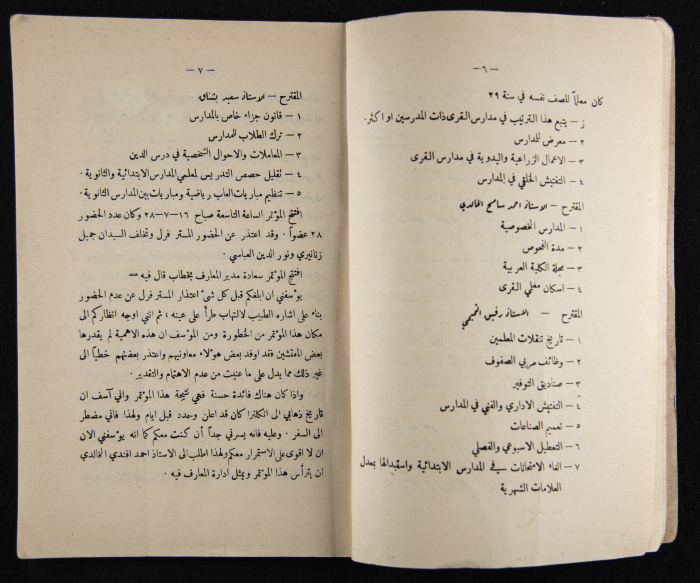 — ٦ —
كان معلماً للصف نفسه في سنة ٢٩
ز — يتبع هذا الترتيب في مدارس القرى ذات المدرسين او اكثر.
٢ — معرض للمدارس
٣ — الاعمال الزراعية واليدوية في مدارس القرى
٤ — التفتيش الخلقي في المدارس
المقترح — الاستاذ احمد سامح الخالدي
١ — المدارس الخصوصية
٢ — مدة الفحوص
٣ — مجلة الكلية العربية
٤ — اسكان معلمي القرى
المقترح — الاستاذ رفيق التميمي
١ — تاريخ تنقلات المعلمين
٢ — وظائف مربي الصفوف
٣ — صناديق التوفير
٤ — التفتيش الاداري والفني في المدارس
٥ — تعميم الصناعات
٦ — التعطيل الاسبوعي والفصلي
٧ — الغاء الامتحانات في المدارس الابتدائية واستبدالها بمعدل
العلامات الشهرية
— ٧ —
المقترح — الاستاذ سعيد بشناق
١ — قانون جزاء خاص بالمدارس
٢ — ترك الطلاب للمدارس
٣ — المعاملات والاحوال الشخصية في درس الدين
٤ — تقليل حصص التدريس لمعلمي المدارس الابتدائية والثانوية.
٥ — تنظيم مباريات العاب رياضية ومباريات بين المدارس الثانوية.
افتتح المؤتمر الساعة التاسعة صباح ١٦—٧—٢٨ وكان عدد الحضور
٢٨ عضواً. وقد اعتذر عن الحضور المستر فرل وتخلف السيدان جميل
زنانيري ونور الدين العباسي.
افتتح المؤتمر سعادة مدير المعارف بخطاب قال فيه —
يؤسفني ان ابلغكم قبل كل شئ اعتذار المستر فرل عن عدم الحضور
بناء على اشاره الطبيب لالتهاب طرأ على عينه، ثم انني اوجه انظاركم الى
مكان هذا المؤتمر من الخطورة ومن المؤسف ان هذه الاهمية لم يقدرها
بعض المفتشين فقد اوفد بعض هؤلاء معاونيهم واعتذر بعضهم خطياً الى
غير ذلك مما يدل على ما عنيت من عدم الاهتمام والتقدير.
واذا كان هناك فائدة حسنة فهي نتيجة هذا المؤتمر واني آسف ان
تاريخ ذهابي الى انكلترا كان قد اعلن وحدد قبل ايام ولهذا فاني مضطر
الى السفر. وعليه فانه يسرني جداً أن كنت معكم كما انه يؤسفني الان
ان لا اقوى على الاستمرار معكم ولهذا اطلب الى الاستاذ احمد افندي الخالدي
ان يترأس هذا المؤتمر ويمثل ادارة المعارف فيه.